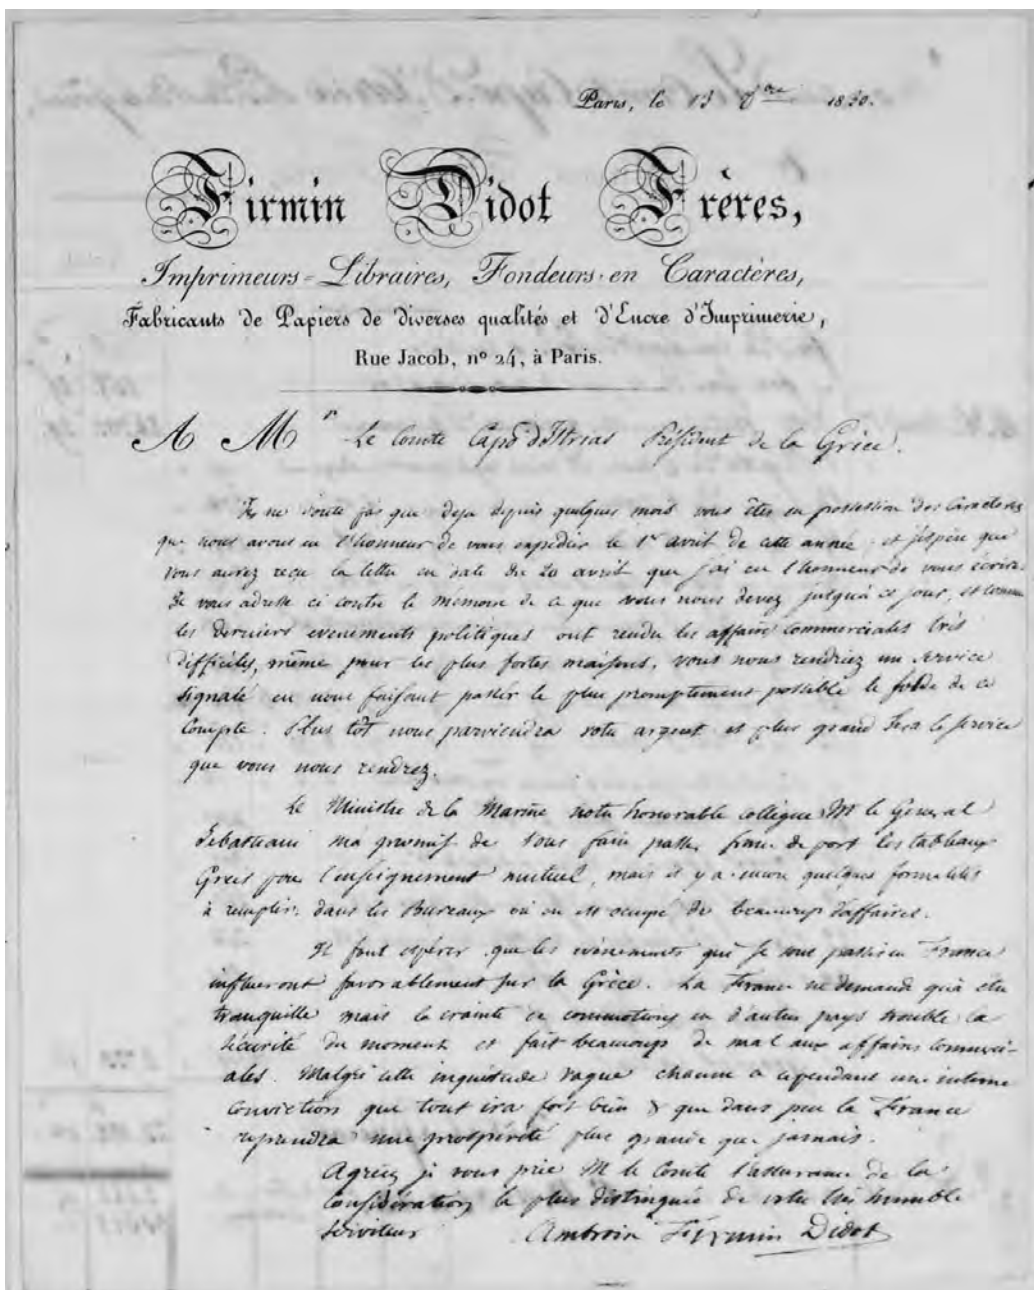 Paris, le 13 1830.
Firmin Didot Frères,
Imprimeurs=Libraires, Fondeurs en Caractères,
Fabricants de Papiers de diverses qualités et d'Encre d'Imprimerie,
Rue Jacob, nº 24, à Paris.
A Mr Le Comte Capo d'Istrias Président de la Grèce.
Je ne doute pas que deja depuis quelques mois vous êtes en possession des Caractères
que nous avons eu l'honneur de vous expédier le 1er avril de cette année, et j'espère que
vous aurez reçu la lettre en date du 20 avril que j'ai eu l'honneur de vous écrire.
Je vous adresse ci contre le mémoire de ce que vous nous devez jusqu'à ce jour, et comme
les derniers evenements politiques ont rendu les affaires commerciales très
difficiles, même pour les plus fortes maisons, vous nous rendriez un service
signalé en nous faisant passer le plus promptement possible le solde de ce
Compte. Plus tôt nous parviendra votre argent et plus grand sera le service
que vous nous rendrez.
Le Ministre de la Marine notre honorable collègue Mr le General
Sebastiani m'a promis de vous faire passer franc de port les tableaux
Grecs pour l'enseignement mutuel, mais il y a encore quelques formalités
à remplir dans les Bureaux où on est occupé de beaucoup d'affaires.
Il faut espérer que les évènements qui se sont passés en France
influeront favorablement sur la Grèce. La France ne demande qu'à être
tranquille mais la crainte de commotions en d'autres pays trouble la
sécurité du moment et fait beaucoup de mal aux affaires commerci-
ales. Malgré cette inquiétude vague chacun a cependant une interne
conviction que tout ira fort bien & que dans peu la France
reprendra une prospérité plus grande que jamais.
Agréez je vous prie Mr le Comte l'assurance de la
Considération la plus distinguée de votre très humble
serviteur Ambroise Firmin Didot